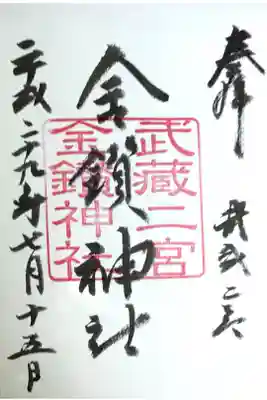 奉拝
武蔵二宮
金鑚神社
武蔵二宮
金鑚神社
平成二十九年七月十五日